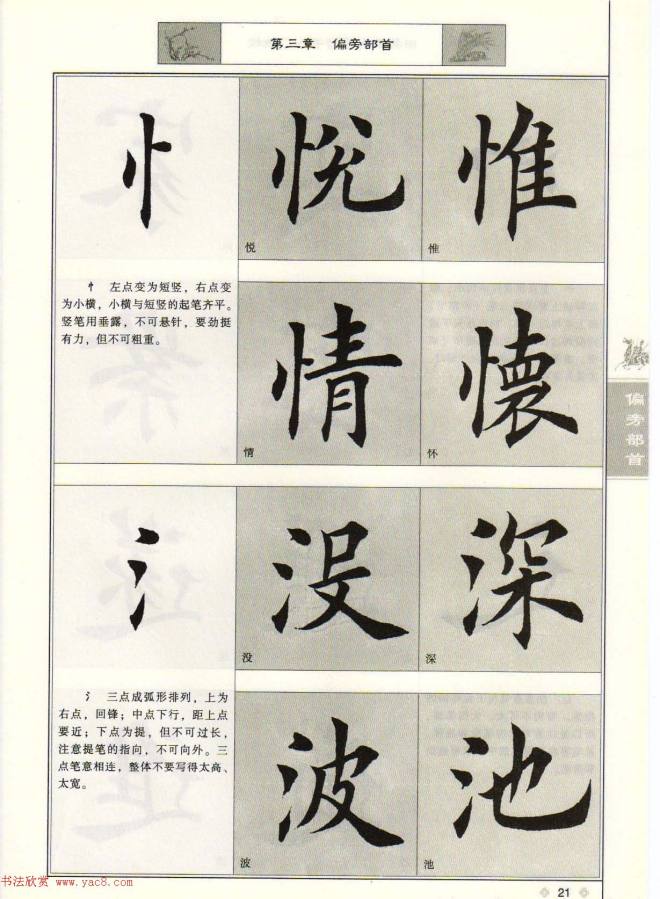 第三章 偏旁部首
忄 悦 惟
悦 惟
忄 左点变为短竖，右点变
为小横，小横与短竖的起笔齐平。
竖笔用垂露，不可悬针，要劲挺
有力，但不可粗重。
情 懷
情 怀
偏旁部首
氵 没 深
没 深
氵 三点成弧形排列，上为
右点，回锋；中点下行，距上点
要近；下点为提，但不可过长，
注意提笔的指向，不可向外。三
点笔意相连，整体不要写得太高、
太宽。
波 池
波 池
书法欣赏 www.yac8.com
21